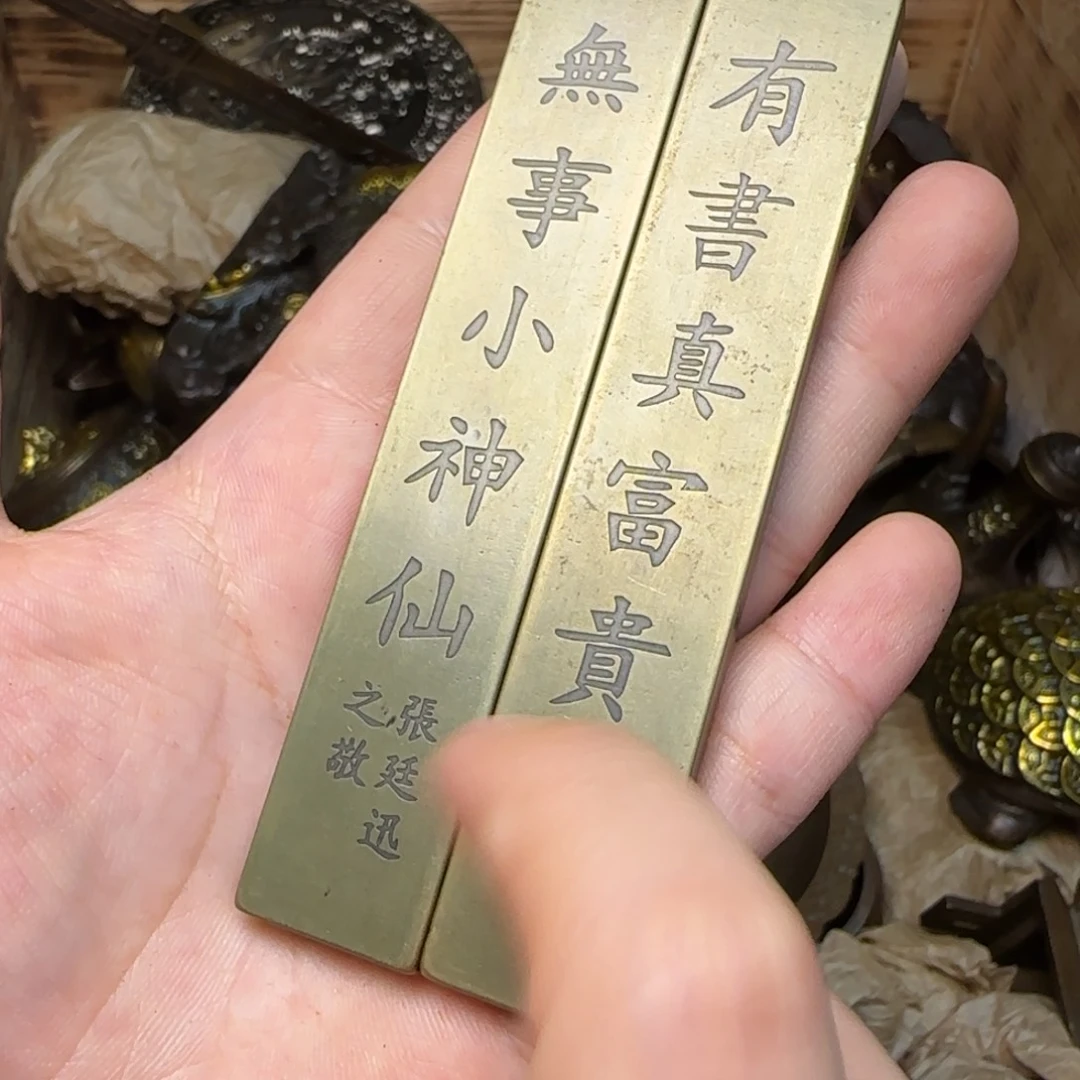 有書真富貴
無事小神仙
張廷迅
之敬